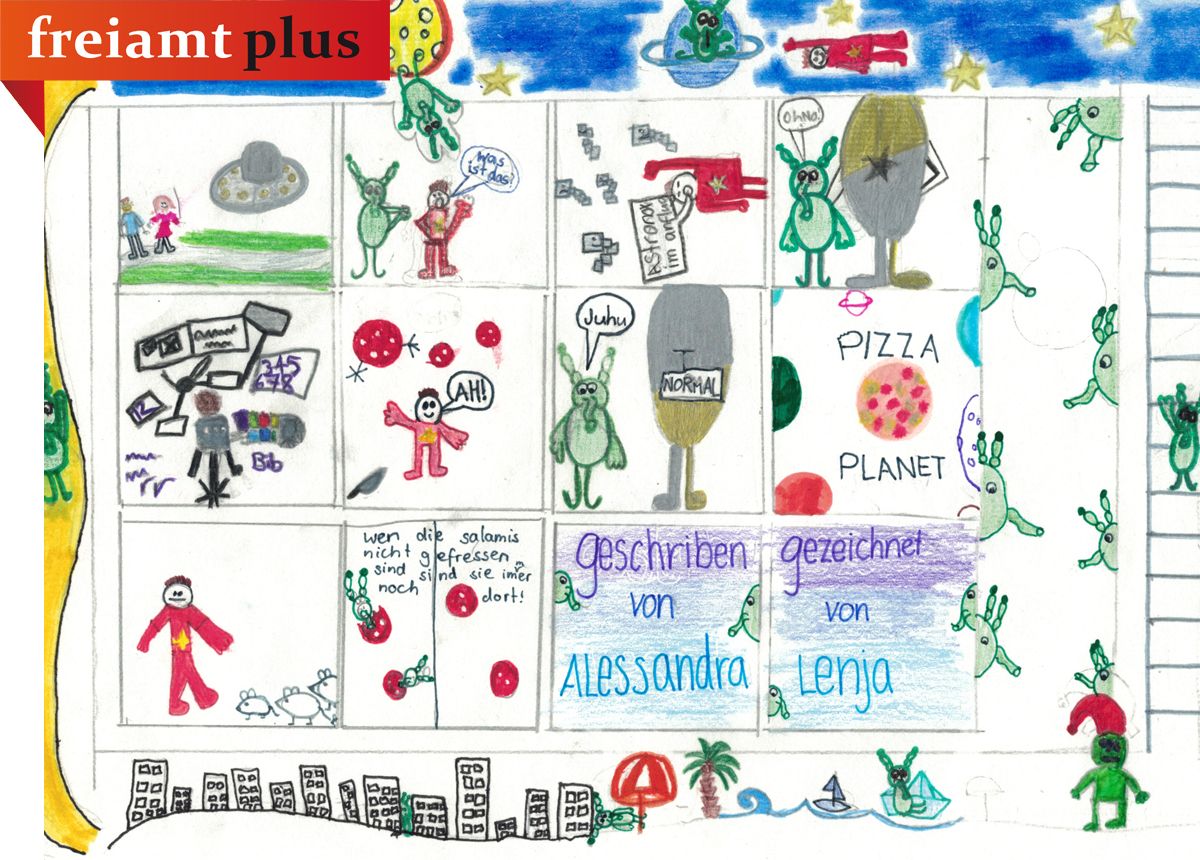 freiamt plus
Was
ist das?
Astronox
im anflug
OhNo!
345
678
12
Bib
AH!
Juhu
NORMAL
PIZZA
PLANET
wen die salamis
nicht gefressen
sind sind sie imer
noch dort!
geschriben
von
ALessandra
gezeichnet
von
Lenja